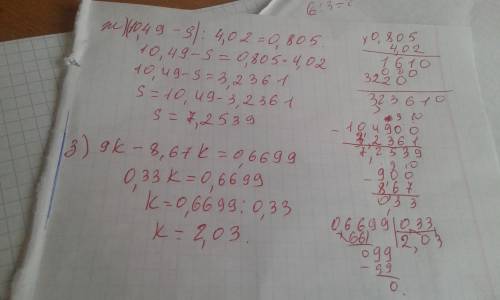 6:3=2
ж) (10,49 - s) : 4,02 = 0,805
10,49 - s = 0,805 · 4,02
10,49 - s = 3,2361
s = 10,49 - 3,2361
s = 7,2539
з) 9k - 8,67k = 0,6699
0,33k = 0,6699
k = 0,6699 : 0,33
k = 2,03.
x 0,805
4,02
1610
000
3220
323610
- 10,4900
3,2361
7,2539
- 9,00
8,67
0,33
0,6699 | 0,33
- 66 | 2,03
099
- 99
0.